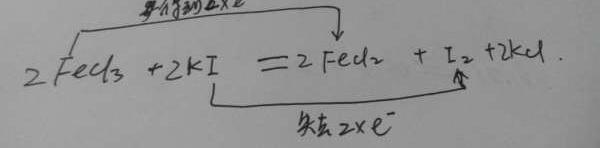 得到2×e⁻
2FeCl₃ + 2KI = 2FeCl₂ + I₂ + 2KCl.
失去2×e⁻